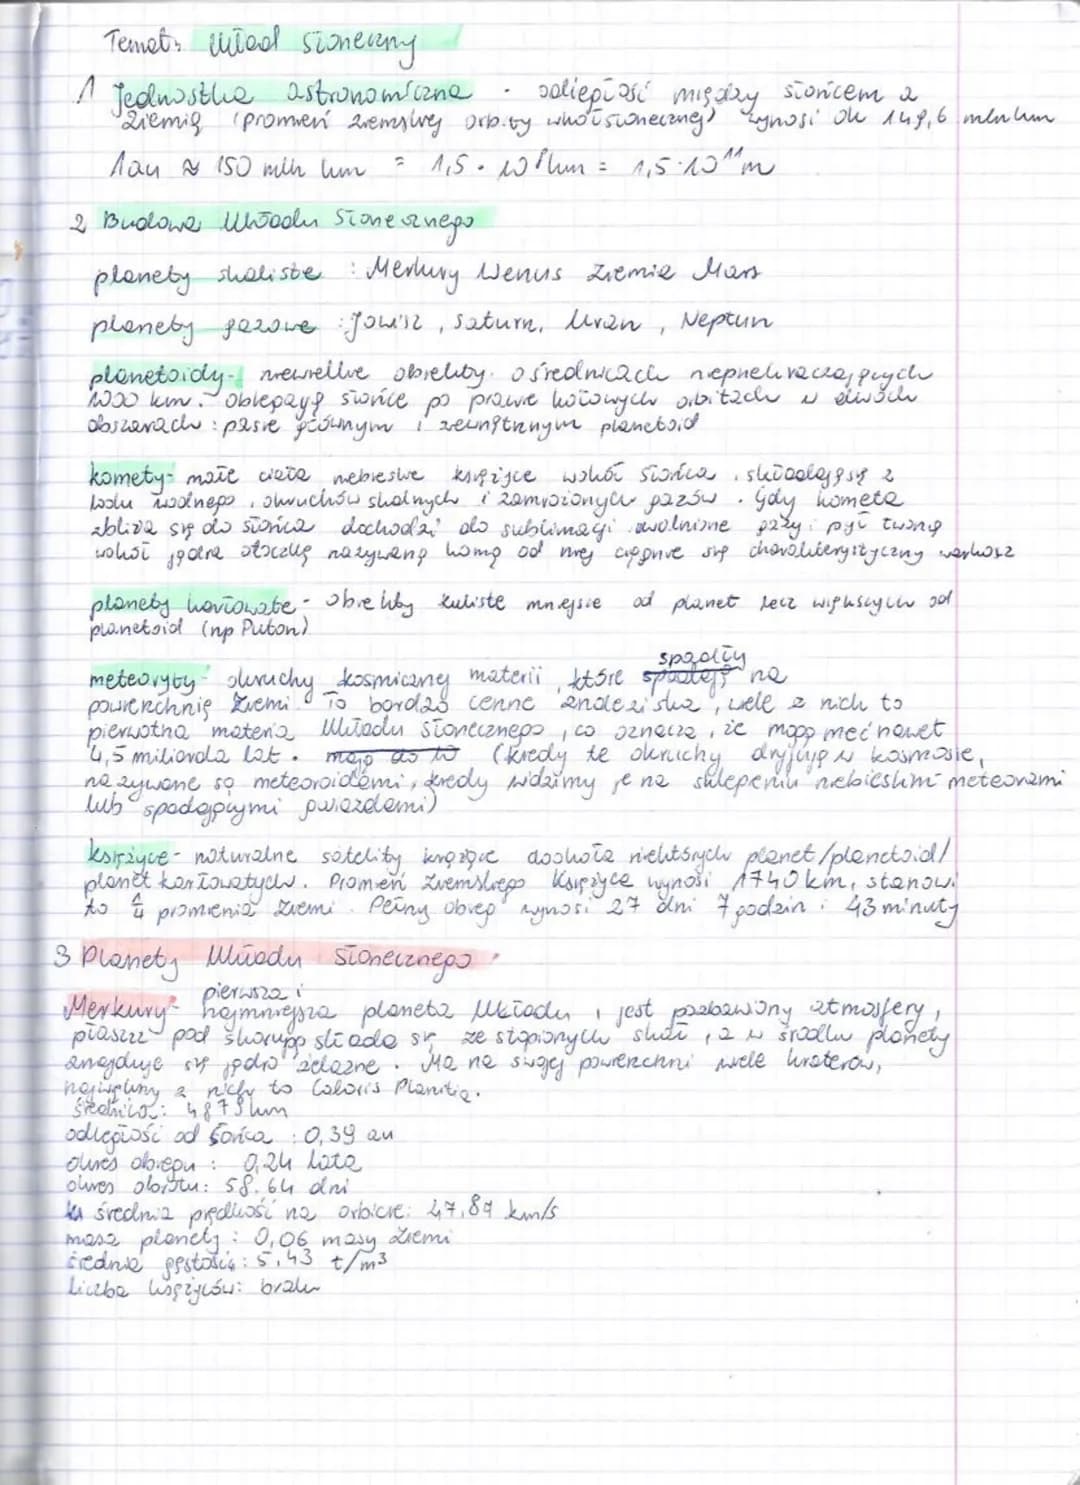 Temat: Układ Słoneczny
1 Jednostka astronomiczna - odległość między słońcem a
Ziemią (promień ziemskiej orbity wokółsłonecznej) wynosi ok 149,6 mln km
1au ≈ 150 mln km = 1,5 · 10⁸ km = 1,5 · 10¹¹ m
2 Budowa Układu Słonecznego
planety skaliste : Merkury Wenus Ziemia Mars
planety gazowe : Jowisz, Saturn, Uran, Neptun
planetoidy - niewielkie obiekty o średnicach nieprzekraczających
1000 km. Oblegają słońce po prawie kołowych orbitach w dwóch
obszarach : pasie głównym i zewnętrznym planetoid
komety - małe ciała niebieskie krążące wokół słońca, składające się z
lodu wodnego, okruchów skalnych i zamrożonych gazów. Gdy kometa
zbliża się do słońca dochodzi do sublimacji. uwolnione gazy i pył tworzą
wokół jądra otoczkę nazywaną komą od niej ciągnie się charakterystyczny warkocz
planety karłowate - obiekty kuliste mniejsze od planet lecz większych od
planetoid (np Pluton)
meteoryty - okruchy kosmicznej materii, które spadły na
powierzchnię Ziemi. To bardzo cenne znaleziska, wiele z nich to
pierwotna materia Układu Słonecznego, co oznacza, że mogą mieć nawet
4,5 miliarda lat. mają do to (kiedy te okruchy dryfują w kosmosie,
nazywane są meteoroidami, kiedy widzimy je na sklepieniu niebieskim meteorami
lub spadającymi gwiazdami)
księżyce - naturalne satelity krążące dookoła niektórych planet/planetoid/
planet karłowatych. Promień ziemskiego Księżyca wynosi 1740 km, stanowi
to ¼ promienia Ziemi. Pełny obieg wynosi 27 dni 7 godzin i 43 minuty
3 Planety Układu Słonecznego
Merkury - pierwsza i najmniejsza planeta Układu, jest pozbawiony atmosfery,
płaszcz pod skorupą składa się ze stopionych skał, a w środku planety
znajduje się jądro żelazne. Ma na swojej powierzchni wiele kraterów,
największy z nich to Caloris Planitia.
średnica: 4879 km
odległość od słońca : 0,39 au
okres obiegu : 0,24 lata
okres obrotu: 58,64 dni
średnia prędkość na orbicie: 47,89 km/s
masa planety : 0,06 masy Ziemi
średnia gęstość: 5,43 t/m³
liczba księżyców: brak